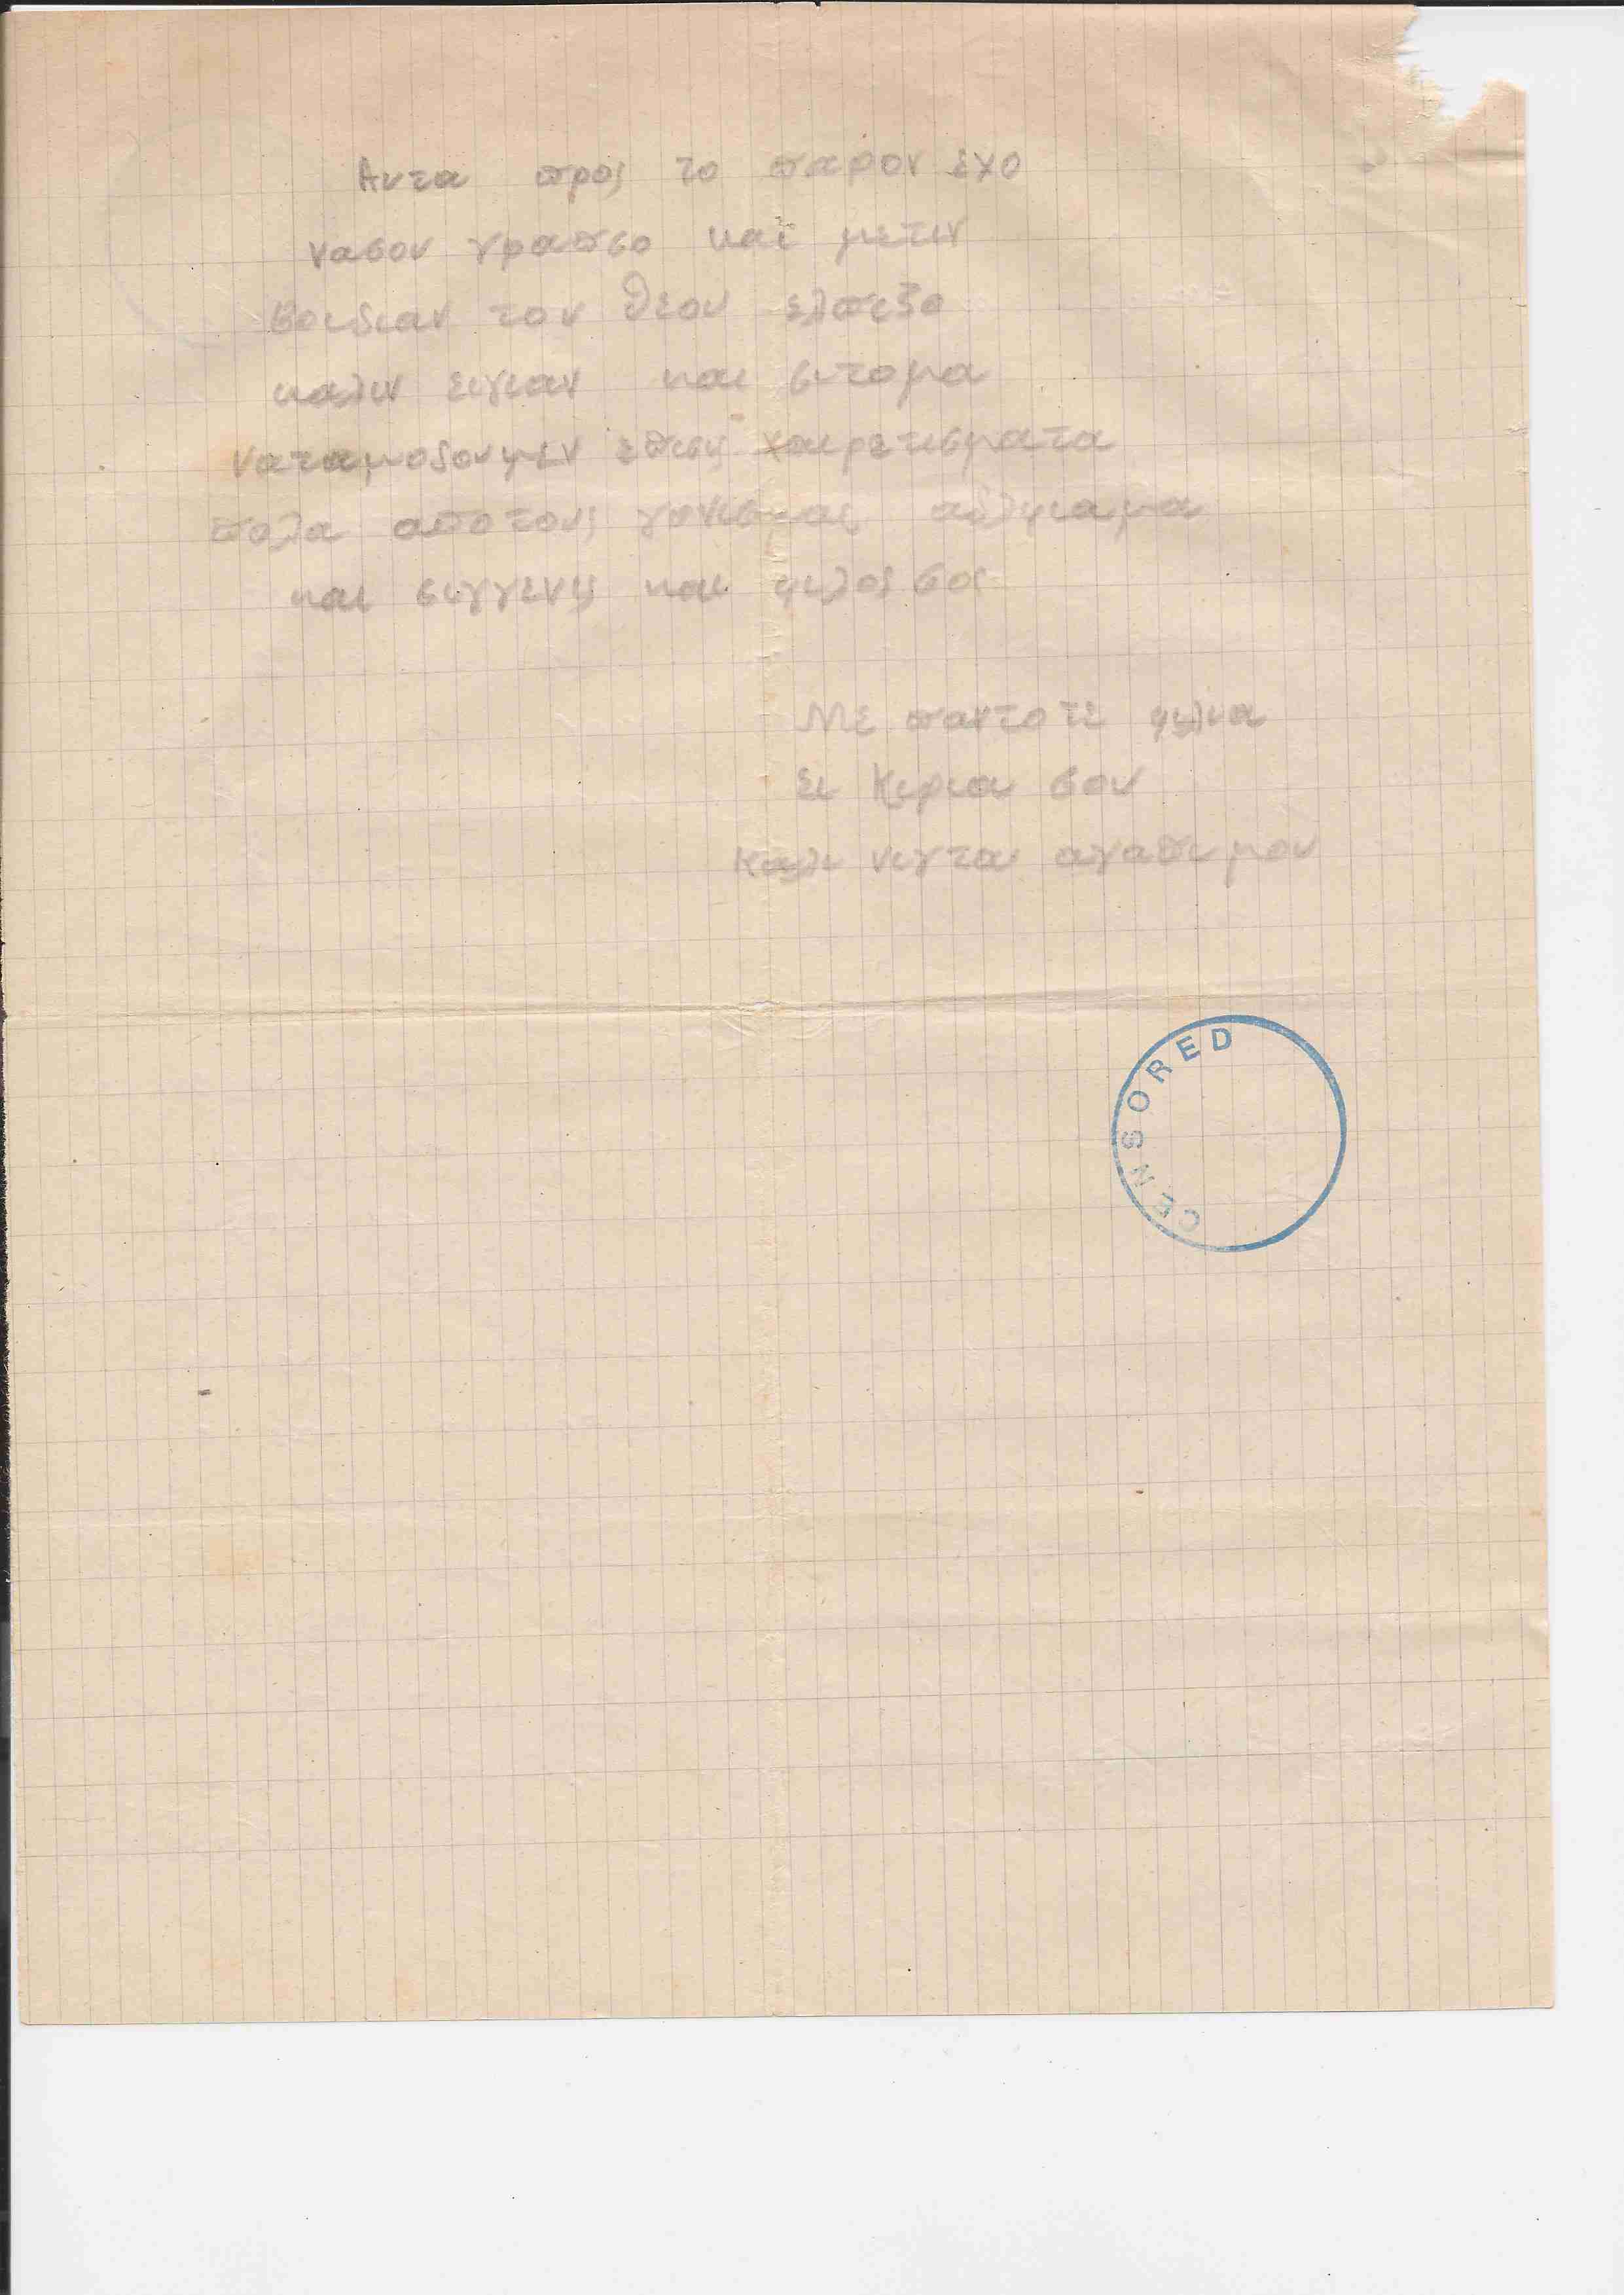 Αυτα προς το παρον εχο
νασου γραπσο και μετιν
βοιδιαν του θεου ελπιζο
καλιν ειγιαν και σιτομα
ναταμοσουμεν επισις χαιρετισματα
πολα απο τους γονισμας αδλφιαμα
και σιγγενις και φιλος σος
Με παντοτε φιλια
ει Κιρια σου
Καλι νιγτα αγαπι μου
CENSORED